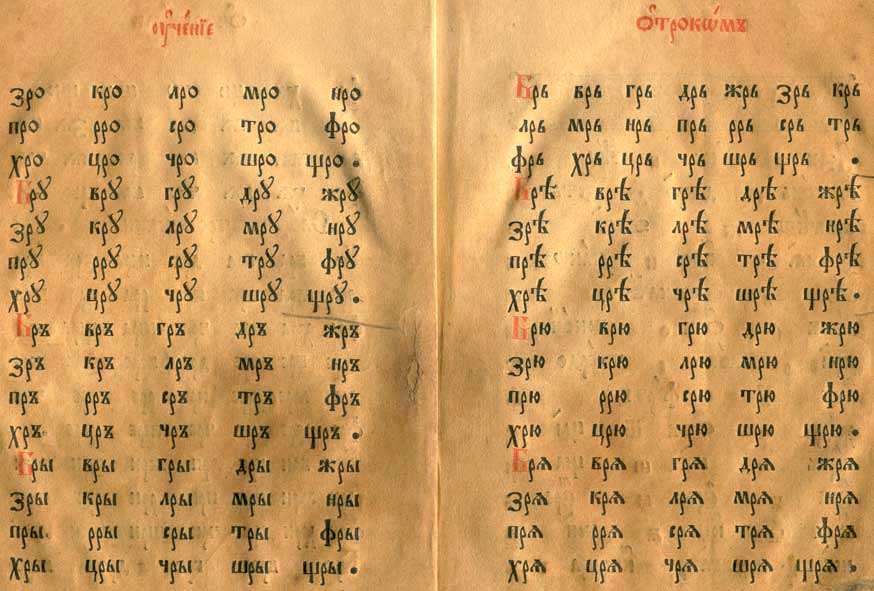 ѹ҆че́нїе
зро кро лро мро нро
про рро сро тро фро
хро цро чро шро щро .
Брꙋ врꙋ грꙋ дрꙋ жрꙋ
зрꙋ крꙋ лрꙋ мрꙋ нрꙋ
прꙋ ррꙋ срꙋ трꙋ фрꙋ
хрꙋ црꙋ чрꙋ шрꙋ щрꙋ .
Бръ връ гръ дръ жръ
зръ кръ лръ мръ нръ
пръ рръ сръ тръ фръ
хръ цръ чръ шръ щръ .
Бры вры гры дры жры
зры кры лры мры нры
пры рры сры тры фры
хры цры чры шры щры .
Ѻ҆трокѡ́мъ
Брь врь грь дрь жрь зрь крь
лрь мрь нрь прь ррь срь трь
фрь хрь црь чрь шрь щрь .
Брѣ врѣ грѣ дрѣ жрѣ
зрѣ крѣ лрѣ мрѣ нрѣ
прѣ ррѣ срѣ трѣ фрѣ
хрѣ црѣ чрѣ шрѣ щрѣ .
Брю врю грю дрю жрю
зрю крю лрю мрю нрю
прю ррю срю трю фрю
хрю црю чрю шрю щрю .
Брѧ врѧ грѧ дрѧ жрѧ
зрѧ крѧ лрѧ мрѧ нрѧ
прѧ ррѧ срѧ трѧ фрѧ
хрѧ црѧ чрѧ шрѧ щрѧ .